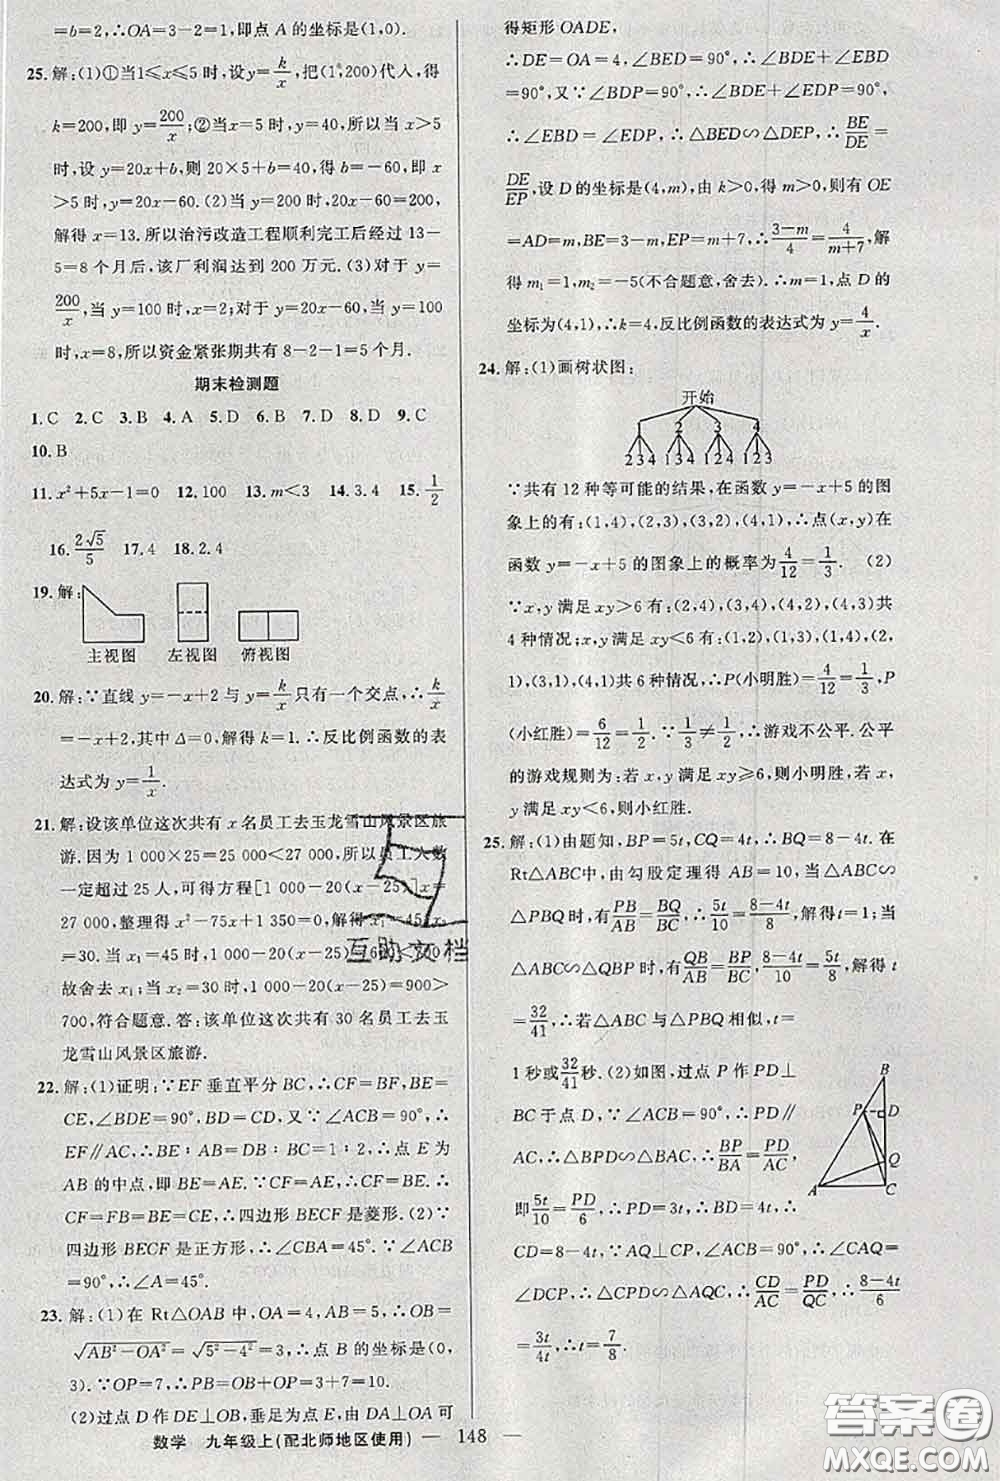 =b=2,∴OA=3-2=1,即点 A 的坐标是(1,0).
25.解:(1)①当1≤x≤5 时,设 y=k/x,把(1,200)代入,得
k=200,即 y=200/x;②当x=5 时,y=40,所以当 x>5
时,设 y=20x+b,则 20×5+b=40,得 b=-60,即 x
>5时,y=20x-60.(2)当 y=200 时,20x-60=200,
解得 x=13.所以治污改造工程顺利完工后经过 13-
5=8 个月后,该厂利润达到 200 万元.(3)对于 y=
200/x,当 y=100 时,x=2;对于 y=20x-60,当 y=100
时,x=8,所以资金紧张期共有 8-2-1=5 个月.
期末检测题
1.C 2.C 3.B 4.A 5.D 6.B 7.D 8.D 9.C
10.B
11.x²+5x-1=0 12.100 13.m<3 14.3.4 15.1/2
16.2√5/5 17.4 18.2.4
19.解:
主视图 左视图 俯视图
20.解:∵直线 y=-x+2 与 y=k/x只有一个交点,∴k/x
=-x+2,其中 Δ=0,解得 k=1.∴反比例函数的表
达式为 y=1/x.
21.解:设该单位这次共有 x 名员工去玉龙雪山风景区旅
游.因为 1 000×25=25 000<27 000,所以员工人数
一定超过 25 人,可得方程[1 000-20(x-25)]x=
27 000,整理得 x²-75x+1 350=0,解得 x₁=45,x₂
=30.当 x₁=45 时,1 000-20(x-25)=600<700
故舍去 x₁;当 x₂=30 时,1 000-20(x-25)=900>
700,符合题意.答:该单位这次共有 30 名员工去玉
龙雪山风景区旅游.
22.解:(1)证明:∵EF 垂直平分 BC,∴CF=BF,BE=
CE,∠BDE=90°,BD=CD.又∵∠ACB=90°,∴
EF∥AC,∴BE∶AB=DB∶BC=1∶2,∴点 E 为
AB 的中点,即 BE=AE.∵CF=AE,∴CF=BE,∴
CF=FB=BE=CE,∴四边形 BECF 是菱形.(2)∵
四边形 BECF 是正方形,∴∠CBA=45°.∵∠ACB
=90°,∴∠A=45°.
23.解:(1)在 Rt△OAB 中,OA=4,AB=5,∴OB=
√AB²-OA²=√5²-4²=3,∴点 B 的坐标为(0,
3).∵OP=7,∴PB=OB+OP=3+7=10.
(2)过点 D 作 DE⊥OB,垂足为点 E,由 DA⊥OA 可
得矩形 OADE,
∴DE=OA=4,∠BED=90°,∴∠BDE+∠EBD=
90°,又∵∠BDP=90°,∴∠BDE+∠EDP=90°,
∴∠EBD=∠EDP,∴△BED∽△DEP,∴BE/DE=
DE/EP,设 D 的坐标是(4,m),由 k>0,得 m>0,则有 OE
=AD=m,BE=3-m,EP=m+7,∴3-m/4=4/m+7,解
得 m₁=1,m₂=-5(不合题意,舍去).∴m=1,点 D 的
坐标为(4,1),∴k=4,反比例函数的表达式为 y=4/x.
24.解:(1)画树状图:
开始
1 2 3 4
234 134 124 123
∵共有 12 种等可能的结果,在函数 y=-x+5 的图
象上的有:(1,4),(2,3),(3,2),(4,1),∴点(x,y)在
函数 y=-x+5 的图象上的概率为4/12=1/3. (2)
∵x,y 满足 xy>6 有:(2,4),(3,4),(4,2),(4,3)共
4 种情况;x,y 满足 xy<6 有:(1,2),(1,3),(1,4),(2,
1),(3,1),(4,1)共 6 种情况,∴P(小明胜)=4/12=1/3,P
(小红胜)=6/12=1/2.∵1/3≠1/2,∴游戏不公平.公平
的游戏规则为:若 x,y 满足 xy≥6,则小明胜,若 x,
y 满足 xy<6,则小红胜.
25.解:(1)由题知,BP=5t,CQ=4t,∴BQ=8-4t.在
Rt△ABC中,由勾股定理得 AB=10,当△ABC∽
△PBQ 时,有PB/AB=BQ/BC,∴5t/10=8-4t/8,解得t=1;当
△ABC∽△QBP 时,有QB/AB=BP/BC,8-4t/10=5t/8,解得 t
=32/41,∴若△ABC 与△PBQ 相似,t=
1 秒或32/41秒.(2)如图,过点 P 作PD⊥
BC于点 D,∵∠ACB=90°,∴PD∥
AC,∴△BPD∽△BAC,∴BP/BA=PD/AC,
即5t/10=PD/6,∴PD=3t,∴BD=4t,∴
CD=8-4t.∵AQ⊥CP,∴∠CAQ=
∠DCP,∴△CPD∽△AQC,∴CD/AC=PD/QC,∴8-4t/6
=3t/4t,∴t=7/8.
B
P
D
Q
A
C
互助文档
数学 九年级上(配北师地区使用) — 148 —
答案圈
MXQE.COM